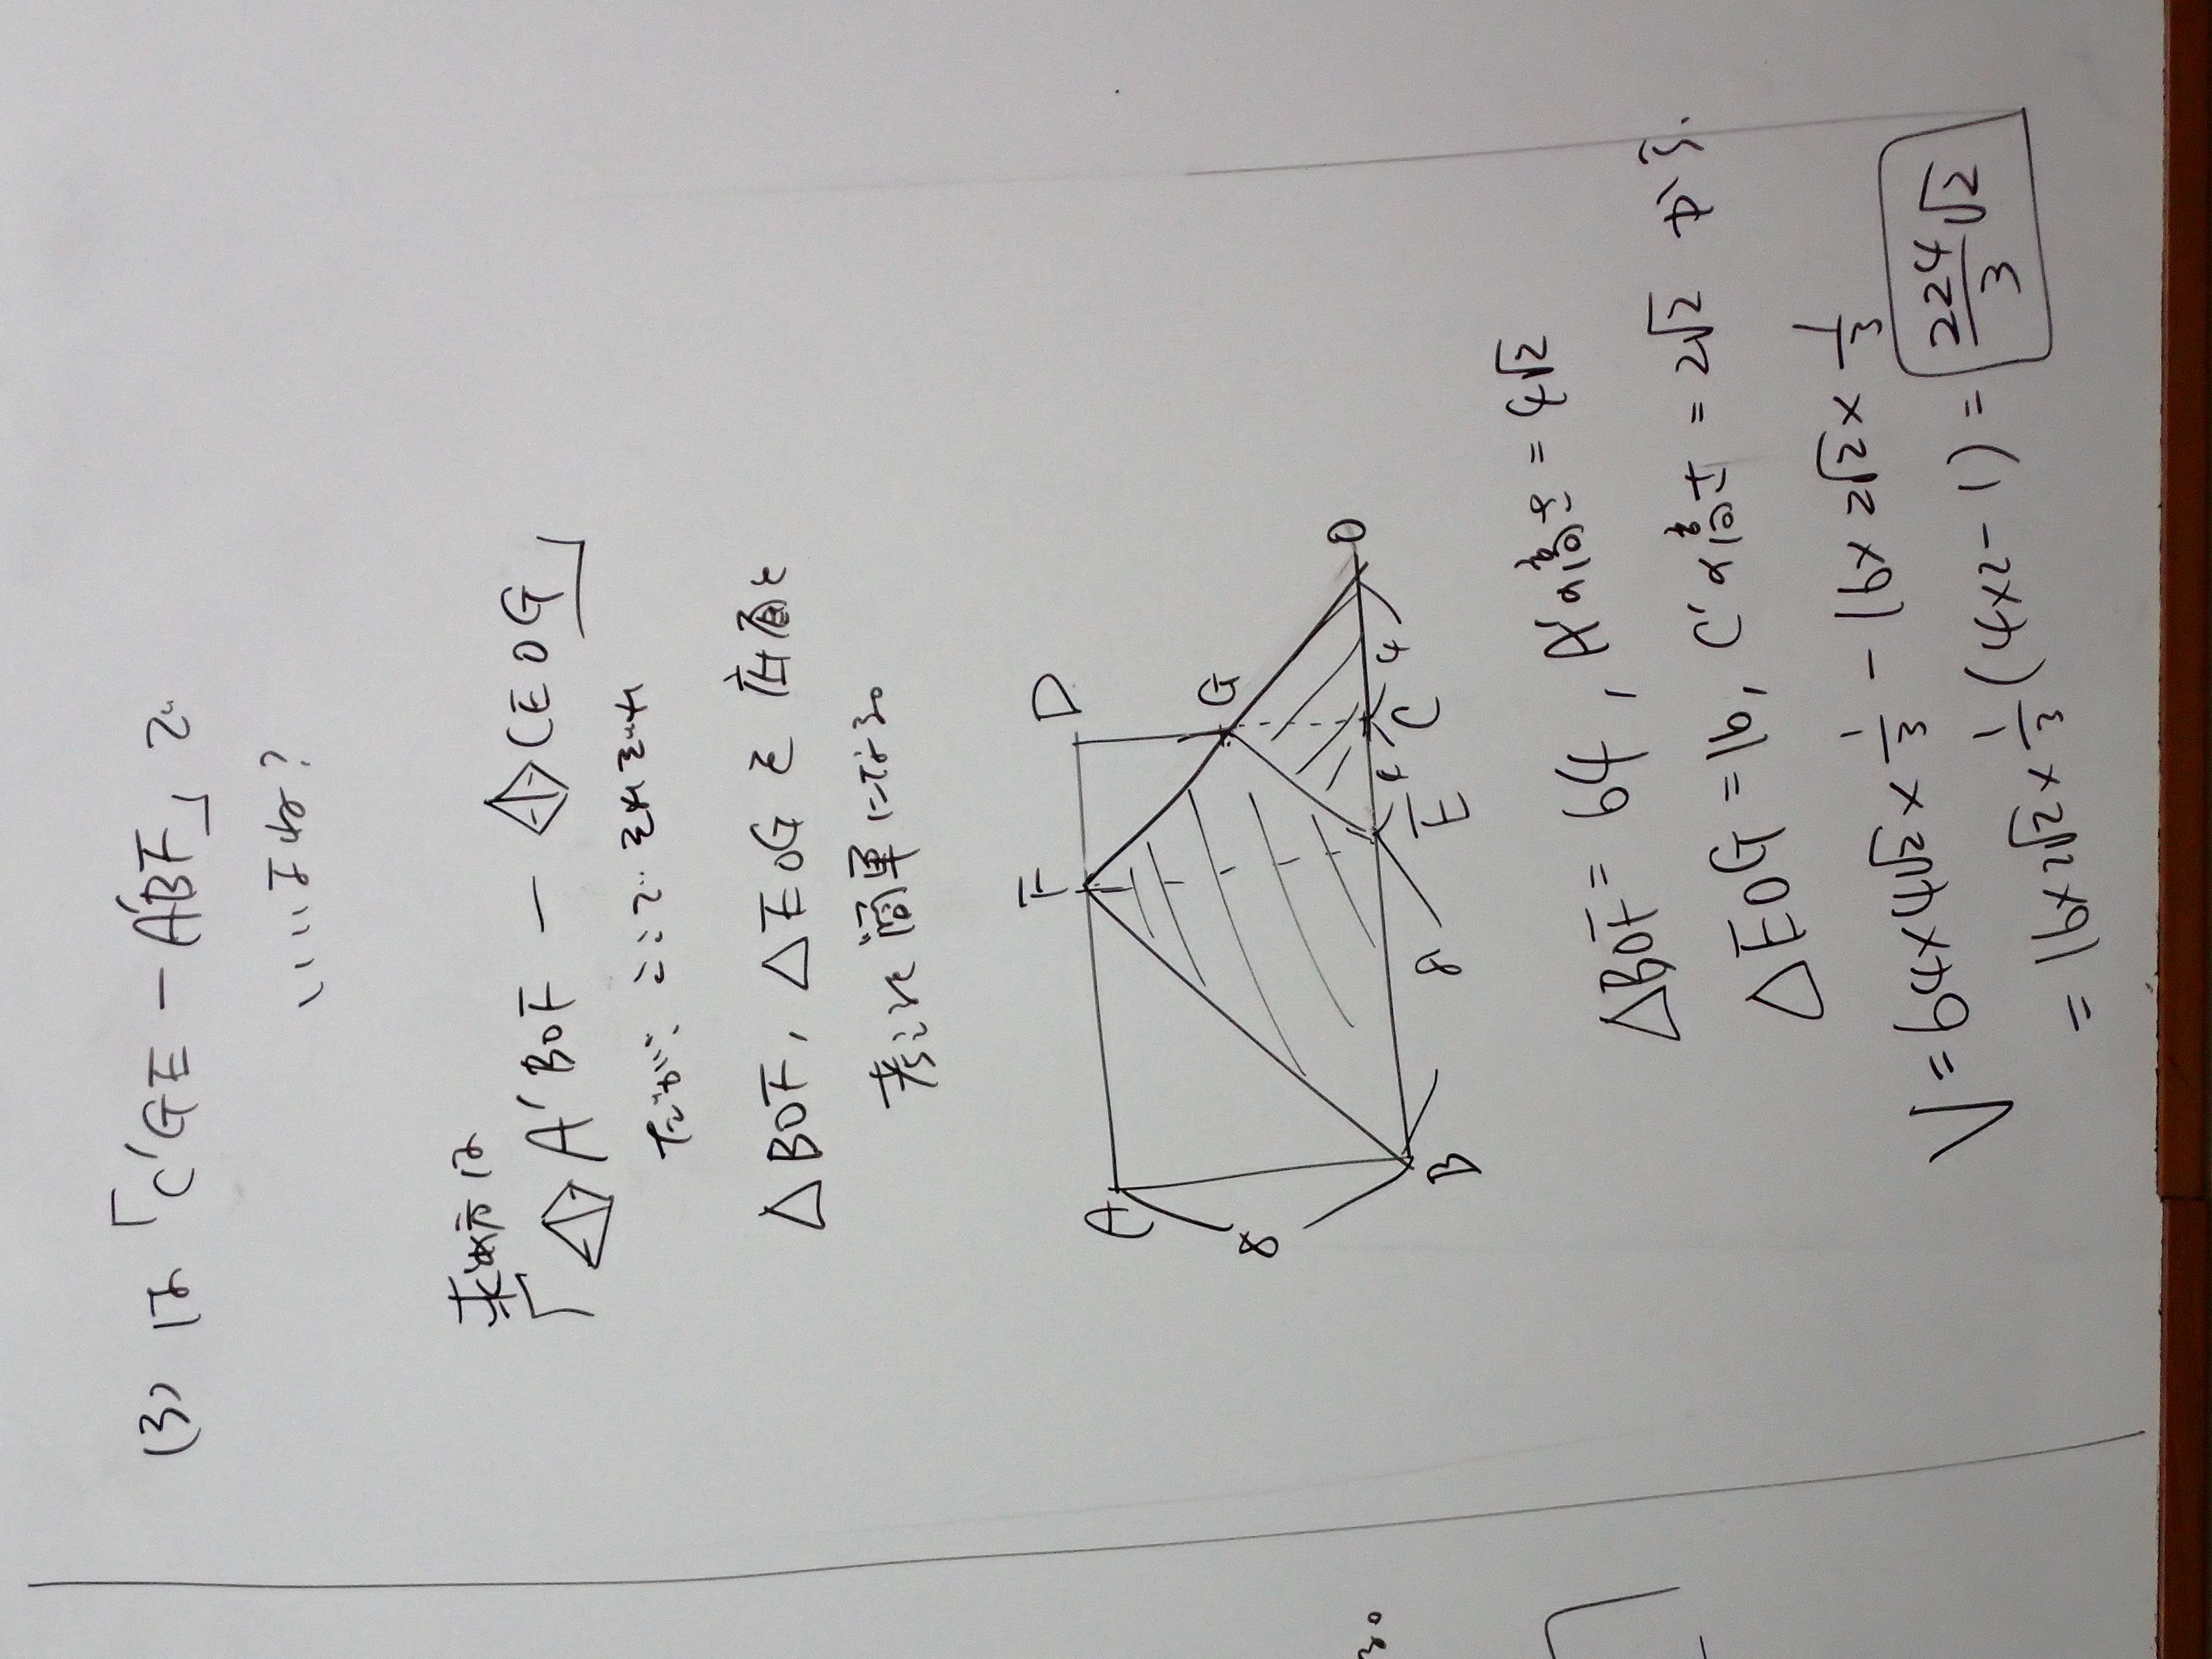 (3) は「C'GE－A'BF」で
いいかな?
求め方は
「A'BOF － C'EOG」
だが、ここで
△BOF, △EOG を 底面と
考えれば簡単になる。
A
B
C
D
E
F
G
O
8
8
4
4
△BOF = 64, A'の高さ = 4√2
△EOG = 16, C'の高さ = 2√2 から
V = 64×4√2×1/3 － 16×2√2×1/3
= 16×2√2×1/3(4×2－1) = 224/3√2
る。